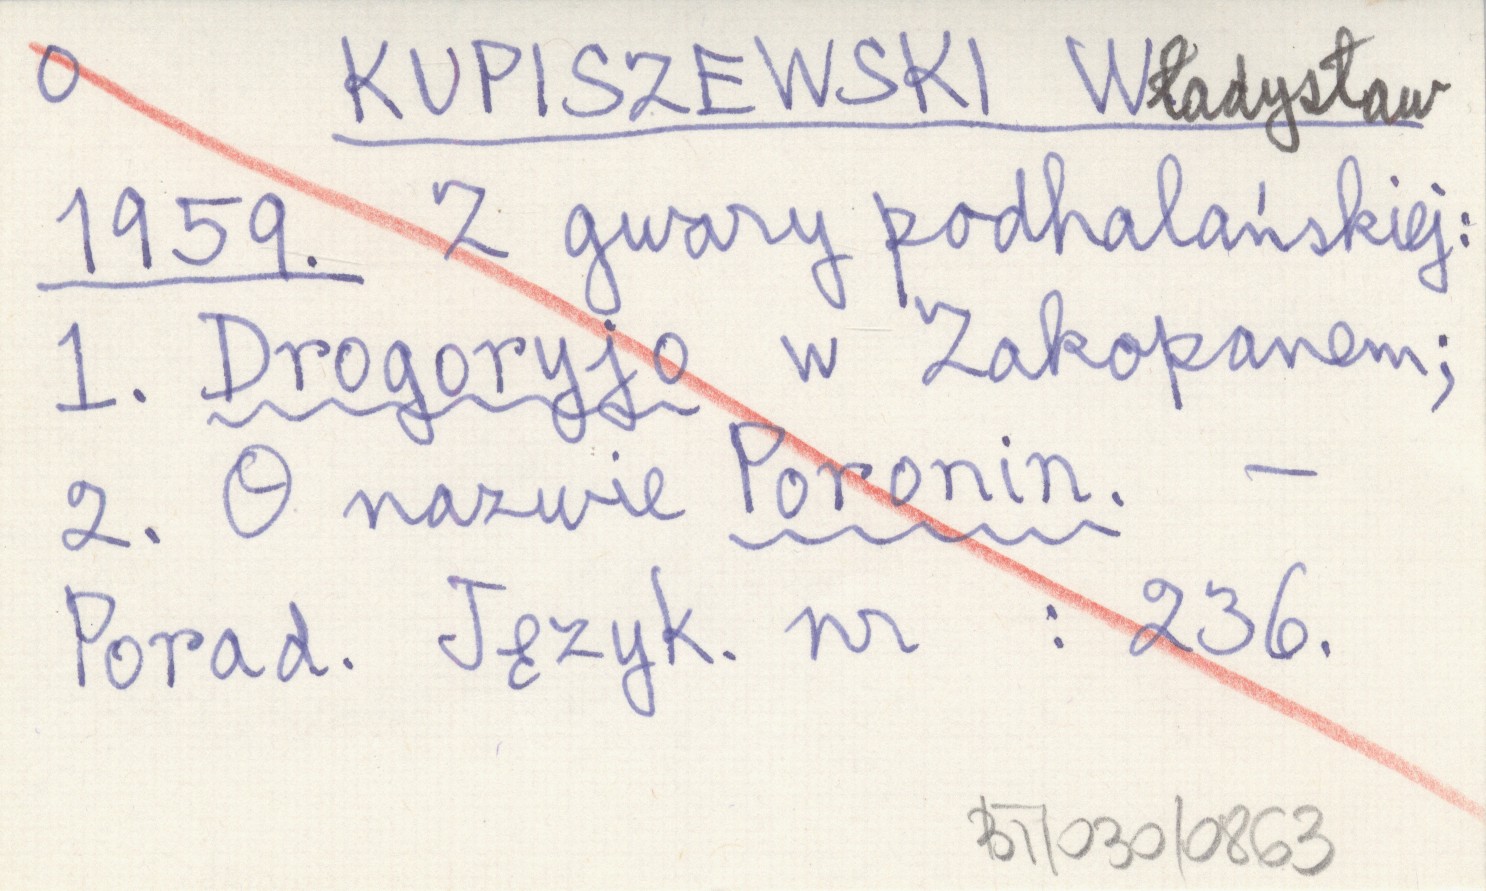 O KUPISZEWSKI Władysław
1959. Z gwary podhalańskiej:
1. Drogoryjo w Zakopanem;
2. O nazwie Poronin. —
Porad. Język. nr : 236.
BT/030/0863